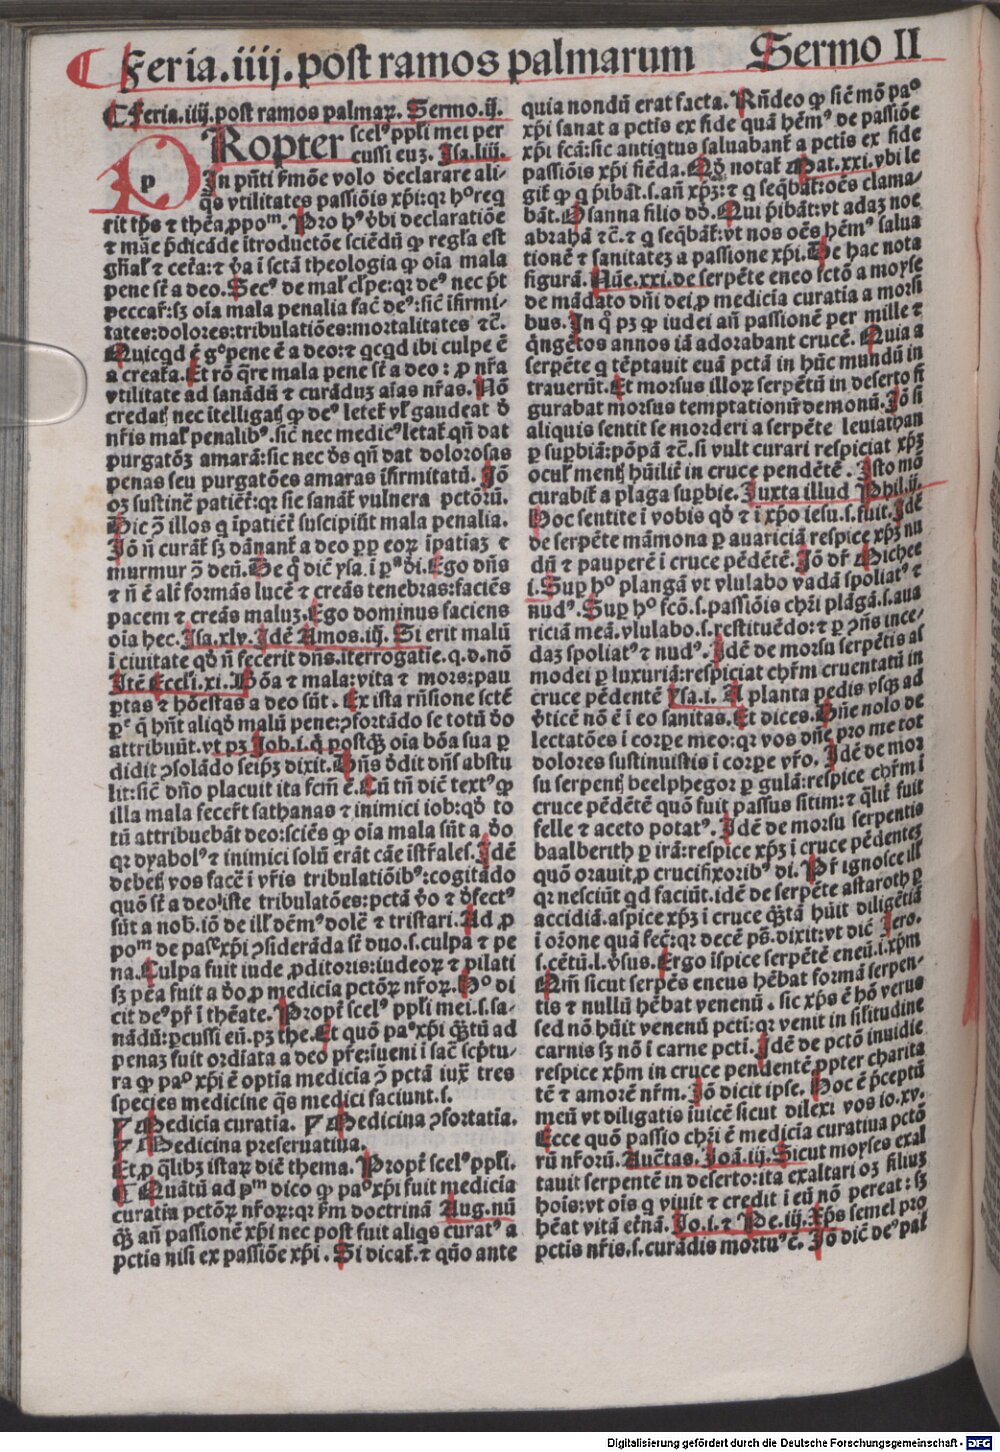 ¶ Feria.iiij.post ramos palmarum Sermo II
¶ Feria.iiij.post ramos palmaꝝ. Sermo.ij.
PRopter scelꝰ ppl̄i mei per
cussi euꝫ. Isa.liii.
In pn̄ti ẜmōe volo declarare ali-
q̄s vtilitates passiōis xp̄i: qꝛ hᵒ req
rit tp̄s ⁊ thēa ꝓpoᵐ. Pro hꝰ v̓bi declaratiōe
⁊ mīe p̄dicāde ītroductōe sciēdū ꝙ regl̄a est
gn̄al̓ ⁊ cert̓a: ⁊ v̓a ī sctā theologia ꝙ oīa mala
pene st̄ a deo. Secꝰ de mal̓ cl̓pe: qꝛ deꝰ nec p̄t
peccar̓: sꝫ oīa mala penalia fac̓ deꝰ: sic̄ īfirmi-
tates: dolores: tribulatiōes: mortalitates ⁊c̄.
Quicq̇d ē gᵒ pene ē a deo: ⁊ q̇cq̇d ibi culpe ē
a creat̓a. Et rō q̄re mala pene st̄ a deo: ꝓ nr̄a
vtilitate ad sanādū ⁊ curāduꝫ aīas nr̄as. Nō
credat̓ nec ītelligat̓ ꝙ deꝰ letet̓ vl̓ gaudeat d̓
nr̄is mal̓ penalibꝰ. sic̄ nec medicꝰ letat̓ qn̄ dat
purgatōꝫ amarā: sic nec d̓s qn̄ dat dolorosas
penas seu purgatōes amaras īfirmitatū. Iō
oꝫ sustinē patiēt̓: qꝛ sic sanāt̓ vulnera pctōrū.
Sic ꝯ̄ illos q ip̄atiēt̓ suscipiūt mala penalia.
Iō n̄ curāt̓ sꝫ dānant̓ a deo ꝓꝑ eoꝝ īpatiaꝫ ⁊
murmur ꝯ̄ deū. De q̊ dic̄ ysa. ī ꝑᵃ di. Ego dn̄s
⁊ n̄ ē alt̓ formās lucē ⁊ creās tenebras: faciēs
pacem ⁊ creās maluꝫ. Ego dominus faciens
oīa hec. Isa.xlv. Idē Amos.iij. Si erit malū
ī ciuitate qd̓ n̄ fecerit dn̄s. īterrogatīe. q.d. nō
Itē Eccl̓i.xi. Bōa ⁊ mala: vita ⁊ mors: pau
ꝑtas ⁊ hōestas a deo sūt. Ex ista rn̄sione sctē
ꝑᵉ q̇ hn̄t aliqd̓ malū pene: ꝯfortādo se totū d̓o
attribuūt. vt pꝫ Iob.i. q̊ postq̄ꝫ oīa bōa sua ꝑ
didit ꝯsolādo seip̄ꝫ dixit. Dn̄s d̓dit dn̄s abstu
lit: sic̄ dn̄o placuit ita fcm̄ ē. Cū tn̄ dic̄ textꝰ ꝙ
illa mala fecer̄t sathanas ⁊ inimici iob: qd̓ to
tū attribuebāt deo: sciēs ꝙ oīa mala sūt a d̓o
qꝛ dyabolꝰ ⁊ inimici solū erāt cāe īstr̄ales. Idē
debet̓ vos facē ī vr̄is tribulatiōibꝰ: cogitādo
quō st̄ a deo: iste tribulatōes: pctā v̓o ⁊ d̓fectꝰ
sūt a nob̓. iō de ill̓ dēmꝰ dolē ⁊ tristari. Ad ꝓ
poᵐ de pasᵉ xp̄i ꝯsiderāda st̄ duo. s. culpa ⁊ pe
na. Culpa fuit iude ꝓditoris: iudeoꝝ ⁊ pilati
sꝫ pēa fuit a d̓o ꝓ medicia pctōꝝ nr̄oꝝ. Hᵒ di
cit deꝰ pr̄ ī thēate. Propt̓ scelꝰ ppl̄i mei. s. sa-
nādū: ꝑcussi eū. pꝫ the. Et quō paᵒ xp̄i q̄ꝫtū ad
penaꝫ fuit ordīata a deo pr̄e: īueni ī sac̓ scp̄tu-
ra ꝙ paᵒ xp̄i ē optīa medicīa ꝯ̄ pctā iux̄ tres
species medicine q̄s medici faciunt. s.
¶ Medicia curatīa. ¶ Medicina ꝯfortatīa.
¶ Medicina preseruatīua.
Et ꝓ q̄libꝫ istaꝝ dic̄ thema. Propt̓ scelꝰ ppl̄i.
¶ Quātū ad pᵐ dico ꝙ paᵒ xp̄i fuit medicīa
curatīa pctōꝝ nr̄oꝝ: qꝛ ẜm doctrinā Aug. nū
q̄ꝫ an̄ passionē xp̄i nec post fuit aliq̇s curatꝰ a
pctis nisi ex passiōe xp̄i. Si dicat̓. ⁊ qūo ante
quia nondū erat facta. Rn̄deo ꝙ sic̄ mō paᵒ
xp̄i sanat a pctis ex fide quā hēmꝰ de passiōe
xp̄i fcā: sic antiqtus saluabant̓ a pctis ex fide
passiōis xp̄i fiēda. Qd̓ notat̓ Mat.xxi. vbi le
git̓ ꝙ q p̄ibāt. s. an̄ xp̄ꝫ: ⁊ q seq̄bāt̓: oēs clama-
bāt. Osanna filio dd̓. Qui p̄ibāt: vt adaꝫ noe
abrahā ⁊c̄. ⁊ q seq̄bāt̓: vt nos oēs hēmꝰ salua
tionē ⁊ sanitateꝫ a passione xp̄i. De hac nota
figurā. Nūe.xxi. de serpēte eneo fctō a moyse
de mādato dn̄i dei, ꝓ medicīa curatīa a morsi
bus. In q̊ pꝫ ꝙ iudei an̄ passionē per mille ⁊
q̄ngētos annos iā adorabant crucē. Quia a
serpēte q tēptauit euā pctā in hūc mundū in
trauerūt. Et morsus illoꝝ serpētū in deserto fi
gurabāt morsus temptationū demonū. Iō si
aliquis sentit se morderi a serpēte leuiathan
ꝑ suꝑbiā: pōpā ⁊c̄. si vult curari respiciat xp̄ꝫ
ocul̓ ment̓ hūilit̓ in cruce pendētē. Isto mō
curabit̓ a plaga suꝑbie. Iuxta illud Phil.ij.
Hoc sentite ī vobis qd̓ ⁊ ī xp̄o iesu. s. fuit. Idē
de serpēte māmona ꝑ auariciā respice xp̄ꝫ nu
dū ⁊ pauperē ī cruce pēdētē. Iō dr̄ Michee
i. Suꝑ hᵒ plangā vt vlulabo vadā spoliatꝰ ⁊
nudꝰ. Suꝑ hᵒ fcō. s. passiōis chr̄i plāgā. s. aua
riciā meā. vlulabo. s. restituēdo: ⁊ ꝑ ꝯn̄s ince-
daꝫ spoliatꝰ ⁊ nudꝰ. Idē de morsu serpētis as
modei ꝑ luxuriā: respiciat chr̄m cruentatū in
cruce pēdentē Isa.i. A planta pedis vsqꝫ ad
v̓ticē nō ē ī eo sanitas. Et dices. Dn̄e nolo de
lectatōes ī corꝑe meo: qꝛ vos dn̄e pro me tot
dolores sustinuistis ī corꝑe vr̄o. Idē de mor
su serpent̓ beelphegor ꝑ gulā: respice chr̄m ī
cruce pēdētē quō fuit passus sitim: ⁊ q̄lit̓ fuit
felle ⁊ aceto potatꝰ. Idē de morsu serpentis
baalberith ꝑ irā: respice xp̄ꝫ ī cruce pēdenteꝫ
quō orauit, ꝓ crucifixoribꝰ di. Pr̄ ignosce ill̓
qꝛ nesciūt qd faciūt. idē de serpēte astaroth ꝑ
accidiā. aspice xp̄ꝫ ī cruce q̄ꝫtā hūit diligētiā
ī orōne quā fec̓: qꝛ decē ps̄. dixit: vt dic̄ Iero.
s. cētū. l. v̓sus. Ergo īspice serpētē eneū. i. xp̄m
Qm̄ sicut serpēs eneus hēbat formā serpen-
tis ⁊ nullū hēbat venenū. sic xp̄s ē hō verus
sed nō hūit venenū pcti: qꝛ venit in sil̓itudine
carnis sꝫ nō ī carne pcti. Idē de pctō inuidie
respice xp̄m in cruce pendentē ꝓpter charita
tē ⁊ amorē nr̄m. Iō dicit ipse. Hoc ē p̄ceptū
meū vt diligatis īuicē sicut dilexi vos io.xv.
Ecce quō passio chr̄i ē medicīa curatiua pctō
rū nr̄orū. Auc̄tas. Ioā.iij. Sicut moyses exal
tauit serpentē in deserto: ita exaltari oꝫ filiuꝫ
hoīs: vt oīs q viuit ⁊ credit ī eū nō pereat: sꝫ
hēat vitā et̓nā. Io.i. ⁊ Pe.iij. Xp̄s semel pro
pctis nr̄is. s. curādis mortuꝰ ē. Iō dic̄ deꝰ pat̓
Digitalisierung gefördert durch die Deutsche Forschungsgemeinschaft - DFG